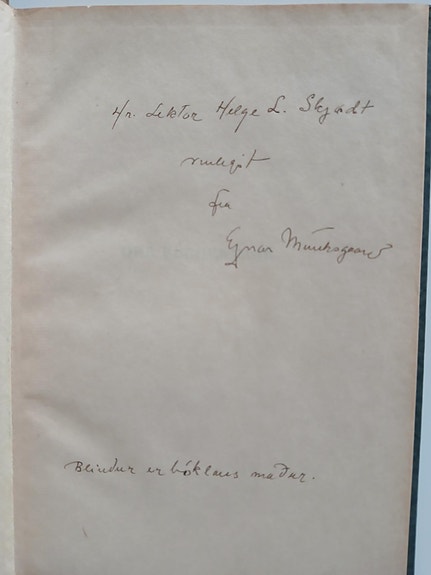 Hr. Lektor Helge L. Skjødt
venligst
fra
Ejnar Munksgaard
Blindur er bóklaus maður.